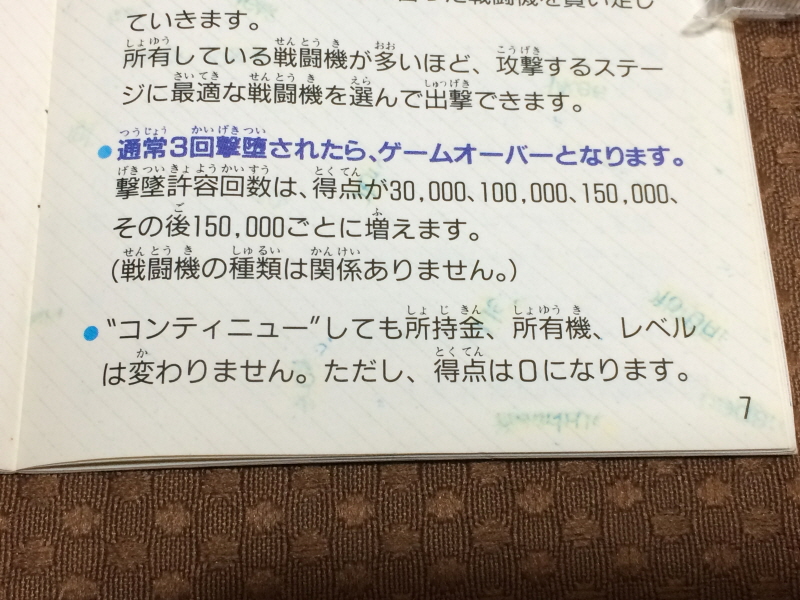 った戦闘機を買い足し
ていきます。
所有している戦闘機が多いほど、攻撃するステー
ジに最適な戦闘機を選んで出撃できます。
●通常3回撃墜されたら、ゲームオーバーとなります。
撃墜許容回数は、得点が30,000、100,000、150,000、
その後150,000ごとに増えます。
(戦闘機の種類は関係ありません。)
●“コンティニュー”しても所持金、所有機、レベル
は変わりません。ただし、得点は0になります。
7